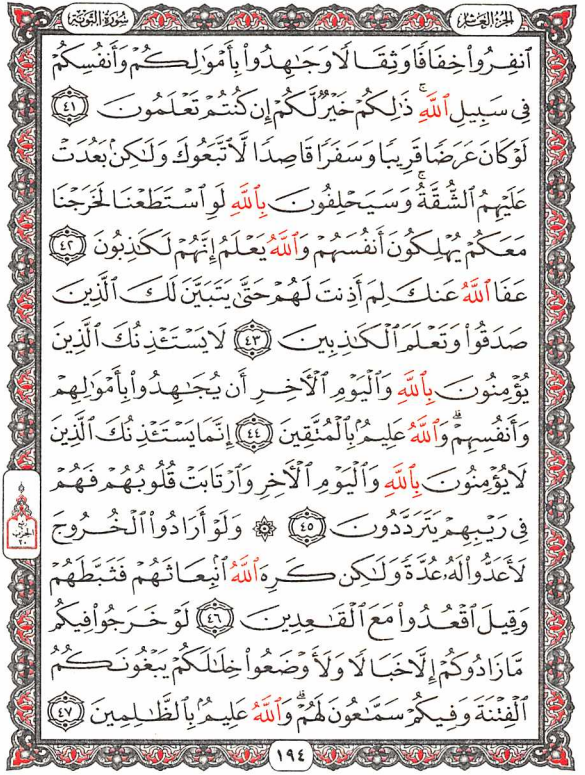 الجزء العاشر
سورة التوبة
ٱنفِرُواْ خِفَافًا وَثِقَالًا وَجَٰهِدُواْ بِأَمْوَٰلِكُمْ وَأَنفُسِكُمْ
فِى سَبِيلِ ٱللَّهِۚ ذَٰلِكُمْ خَيْرٌ لَّكُمْ إِن كُنتُمْ تَعْلَمُونَ ٤١
لَوْ كَانَ عَرَضًا قَرِيبًا وَسَفَرًا قَاصِدًا لَّٱتَّبَعُوكَ وَلَٰكِنۢ بَعُدَتْ
عَلَيْهِمُ ٱلشُّقَّةُۚ وَسَيَحْلِفُونَ بِٱللَّهِ لَوِ ٱسْتَطَعْنَا لَخَرَجْنَا
مَعَكُمْ يُهْلِكُونَ أَنفُسَهُمْ وَٱللَّهُ يَعْلَمُ إِنَّهُمْ لَكَٰذِبُونَ ٤٢
عَفَا ٱللَّهُ عَنكَ لِمَ أَذِنتَ لَهُمْ حَتَّىٰ يَتَبَيَّنَ لَكَ ٱلَّذِينَ
صَدَقُواْ وَتَعْلَمَ ٱلْكَٰذِبِينَ ٤٣ لَا يَسْتَـْٔذِنُكَ ٱلَّذِينَ
يُؤْمِنُونَ بِٱللَّهِ وَٱلْيَوْمِ ٱلْأٓخِرِ أَن يُجَٰهِدُواْ بِأَمْوَٰلِهِمْ
وَأَنفُسِهِمْۗ وَٱللَّهُ عَلِيمٌۢ بِٱلْمُتَّقِينَ ٤٤ إِنَّمَا يَسْتَـْٔذِنُكَ ٱلَّذِينَ
لَا يُؤْمِنُونَ بِٱللَّهِ وَٱلْيَوْمِ ٱلْأٓخِرِ وَٱرْتَابَتْ قُلُوبُهُمْ فَهُمْ
فِى رَيْبِهِمْ يَتَرَدَّدُونَ ٤٥ ۞ وَلَوْ أَرَادُواْ ٱلْخُرُوجَ
لَأَعَدُّواْ لَهُۥ عُدَّةً وَلَٰكِن كَرِهَ ٱللَّهُ ٱنۢبِعَاثَهُمْ فَثَبَّطَهُمْ
وَقِيلَ ٱقْعُدُواْ مَعَ ٱلْقَٰعِدِينَ ٤٦ لَوْ خَرَجُواْ فِيكُم
مَّا زَادُوكُمْ إِلَّا خَبَالًا وَلَأَوْضَعُواْ خِلَٰلَكُمْ يَبْغُونَكُمُ
ٱلْفِتْنَةَ وَفِيكُمْ سَمَّٰعُونَ لَهُمْۗ وَٱللَّهُ عَلِيمٌۢ بِٱلظَّٰلِمِينَ ٤٧
ربع
الحزب
٢٠
١٩٤